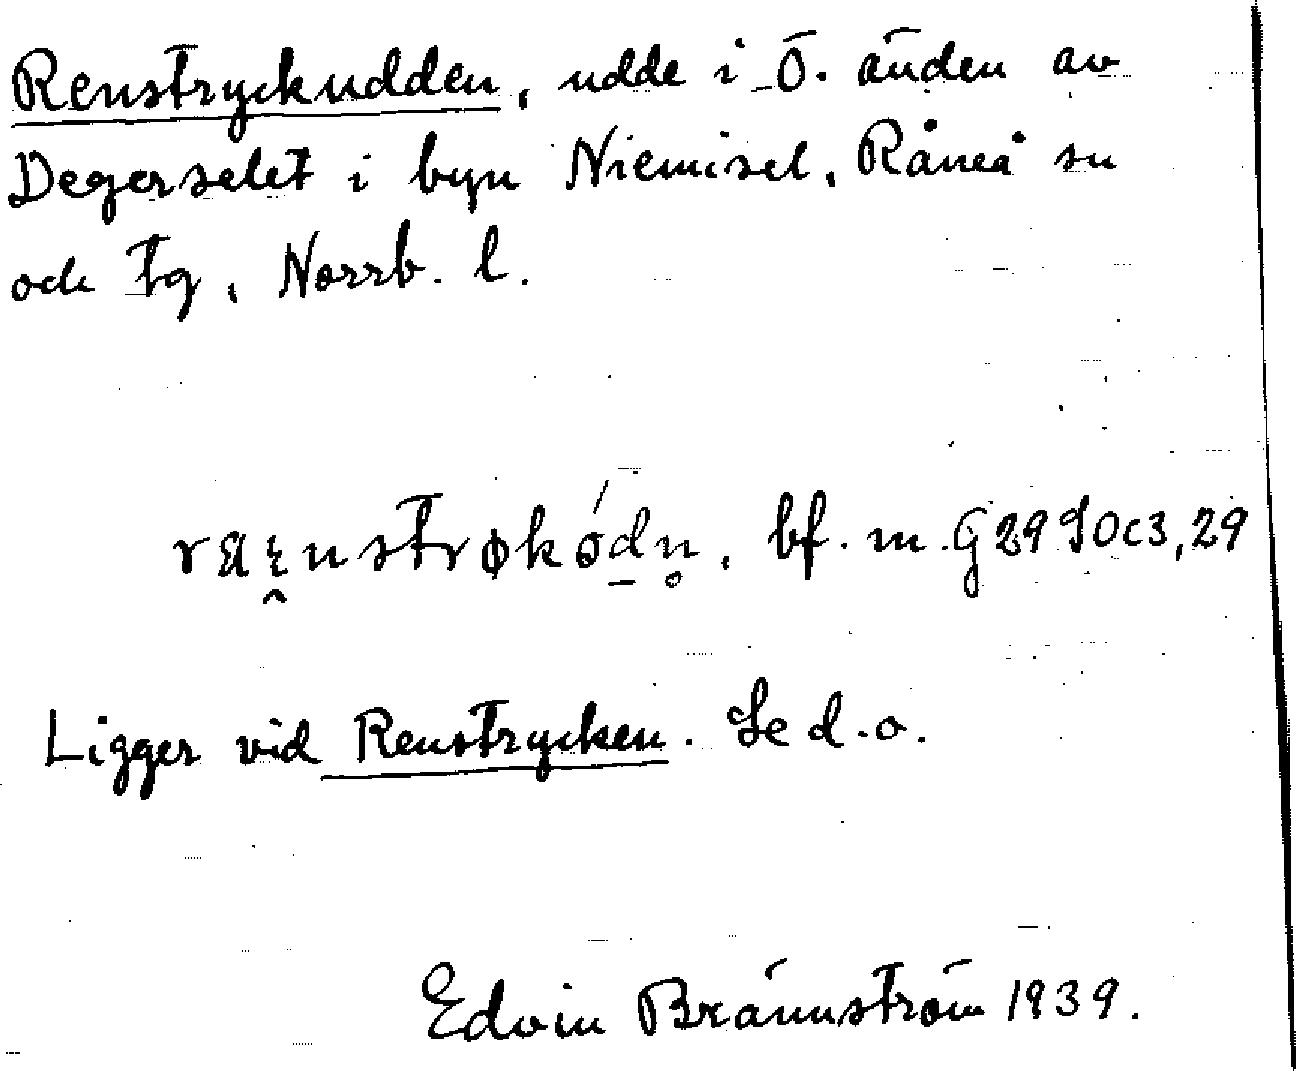 Renstryckudden, udde i Ö. änden av
Degerselet i byn Niemisel, Råneå sn
och tg, Norrb. l.
bf. m. G 29 SOc3,29
Ligger vid Renstrycken. Se d.o.
Edvin Brännström 1939.